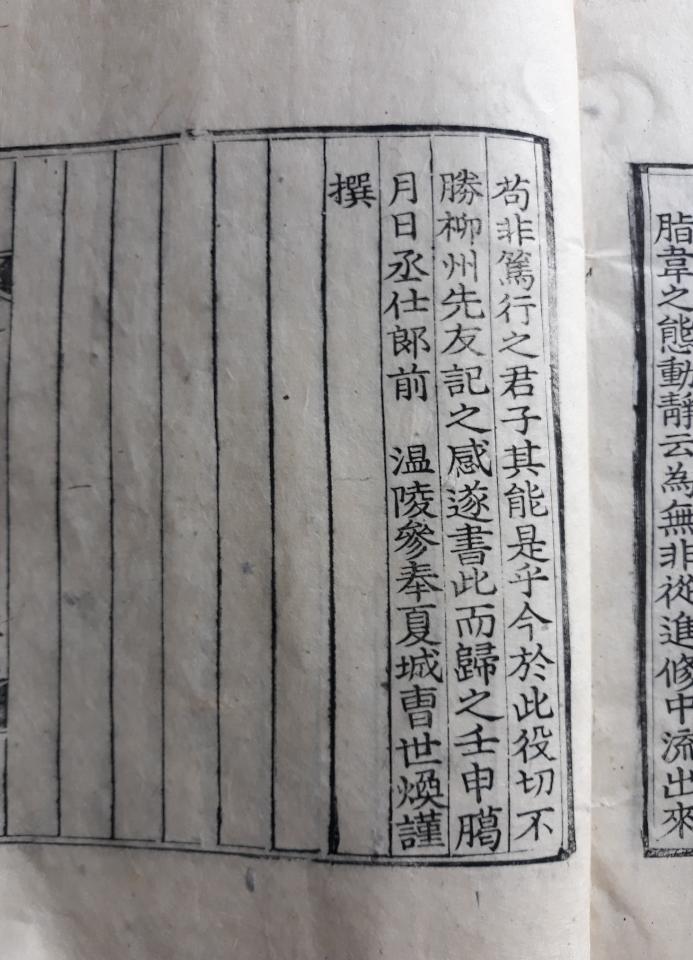 脂韋之態動靜云為無非從進修中流出來
苟非篤行之君子其能是乎今於此役切不
勝柳州先友記之感遂書此而歸之壬申臈
月日丞仕郞前　温陵參奉夏城曺世煥謹
撰